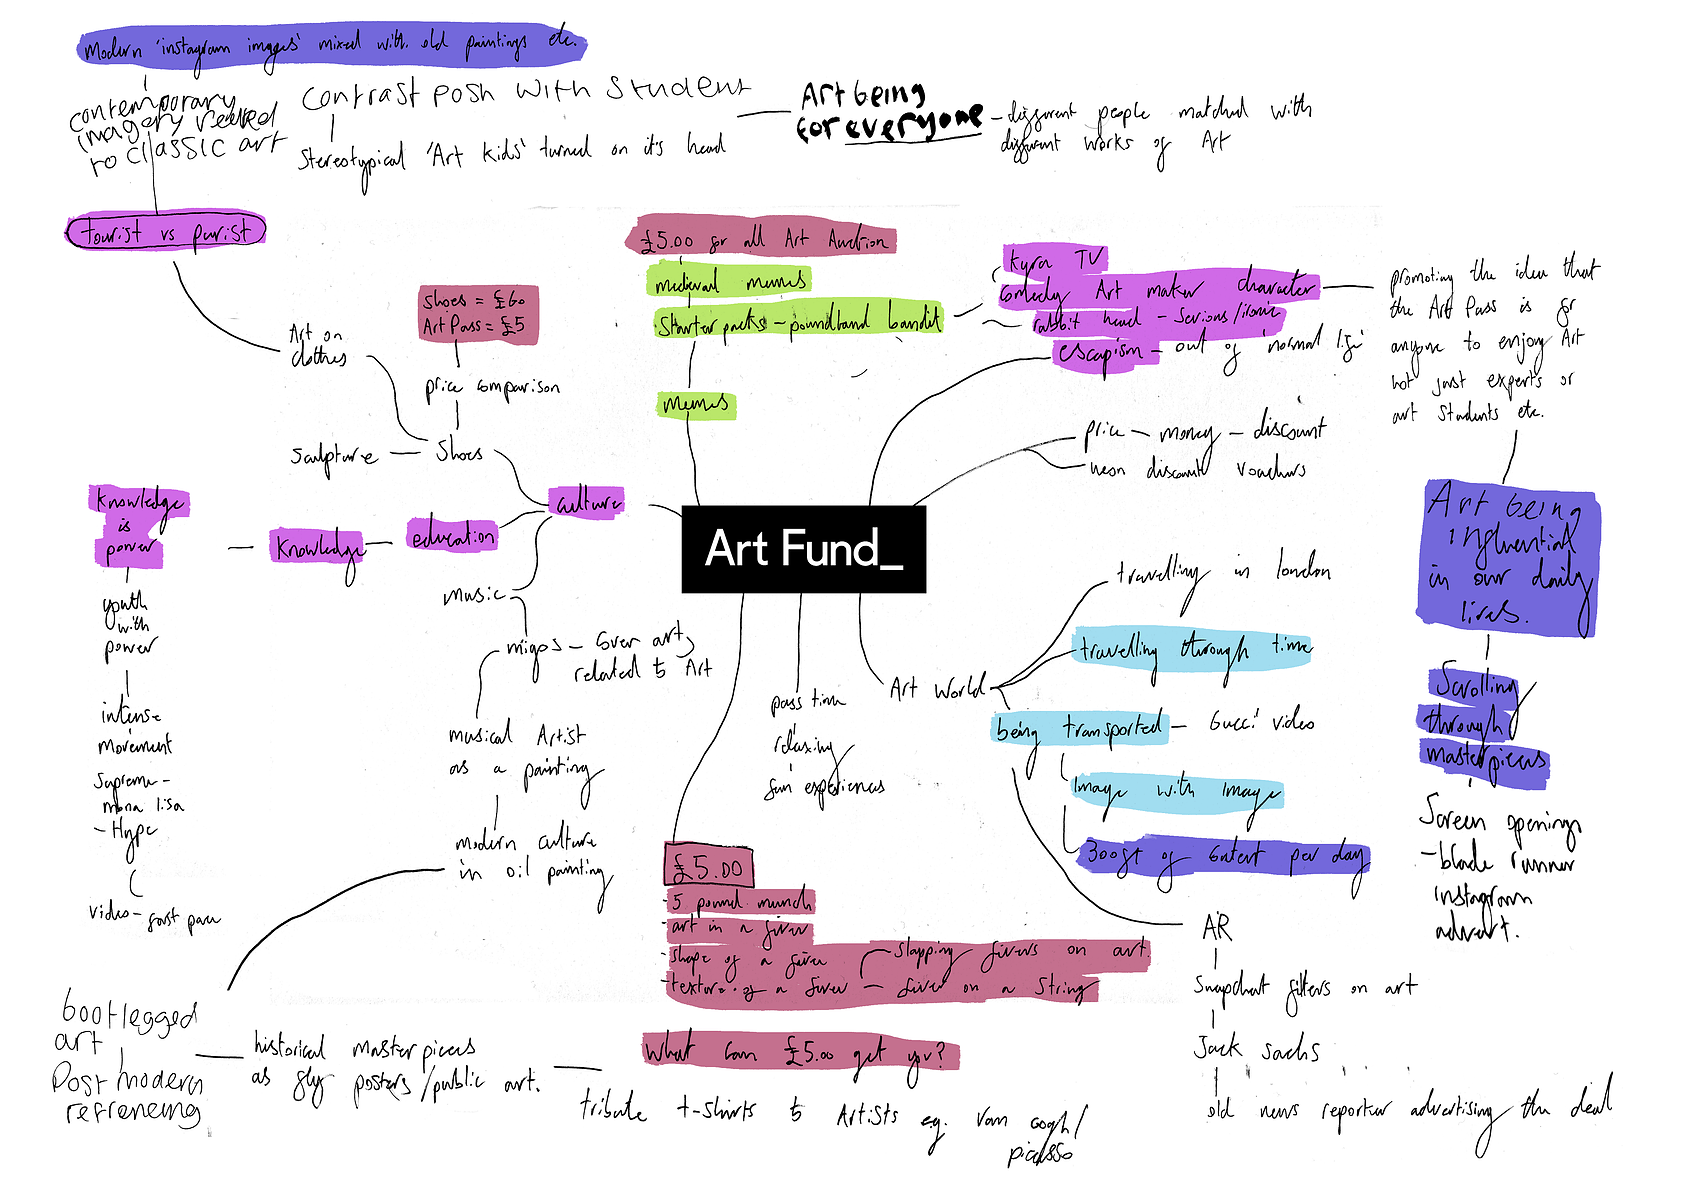 Modern 'instagram images' mixed with old paintings etc.
contemporary
imagery
to classic art
Contrast posh with student
Stereotypical 'Art kids' turned on it's head
Art being
for everyone
- different people matched with
different works of Art
tourist vs purist
£5.00 for all Art Auction
medieval memes
Starter packs - poundland bandit
memes
Kyra TV
Comedy Art maker character
rabbit head - Serious/ironic
escapism - out of normal life
promoting the idea that
the Art Pass is for
anyone to enjoy Art
not just experts or
art students etc.
Shoes = £60
Art Pass = £5
price comparison
Art on
clothes
Sculpture - Shoes
price - money - discount
neon discount vouchers
culture
education
Knowledge
Knowledge
is
power
youth
with
power
intense
movement
Supreme -
mona lisa
- Hype
video - fast pace
music
migos - Cover art
related to Art
musical Artist
as a painting
modern culture
in oil painting
Art Fund_
Art being
influential
in our daily
lives.
Scrolling
through
masterpieces
Screen openings
- blade runner
instagram
advert.
travelling in london
travelling through time
Art World
being transported - Gucci video
Image with image
300ft of Content per day
pass time
relaxing
fun experiences
£5.00
- 5 pound munch
- art in a fiver
- shape of a fiver
- slapping fivers on art.
- texture of a fiver - fiver on a string
What can £5.00 get you?
AR
Snapchat filters on art
Jack Sachs
old news reporter advertising the deal
bootlegged
art
Post modern
refrencing
historical masterpieces
as fly posters/public art.
tribute t-shirts to Artists e.g. Van Gogh/
picasso